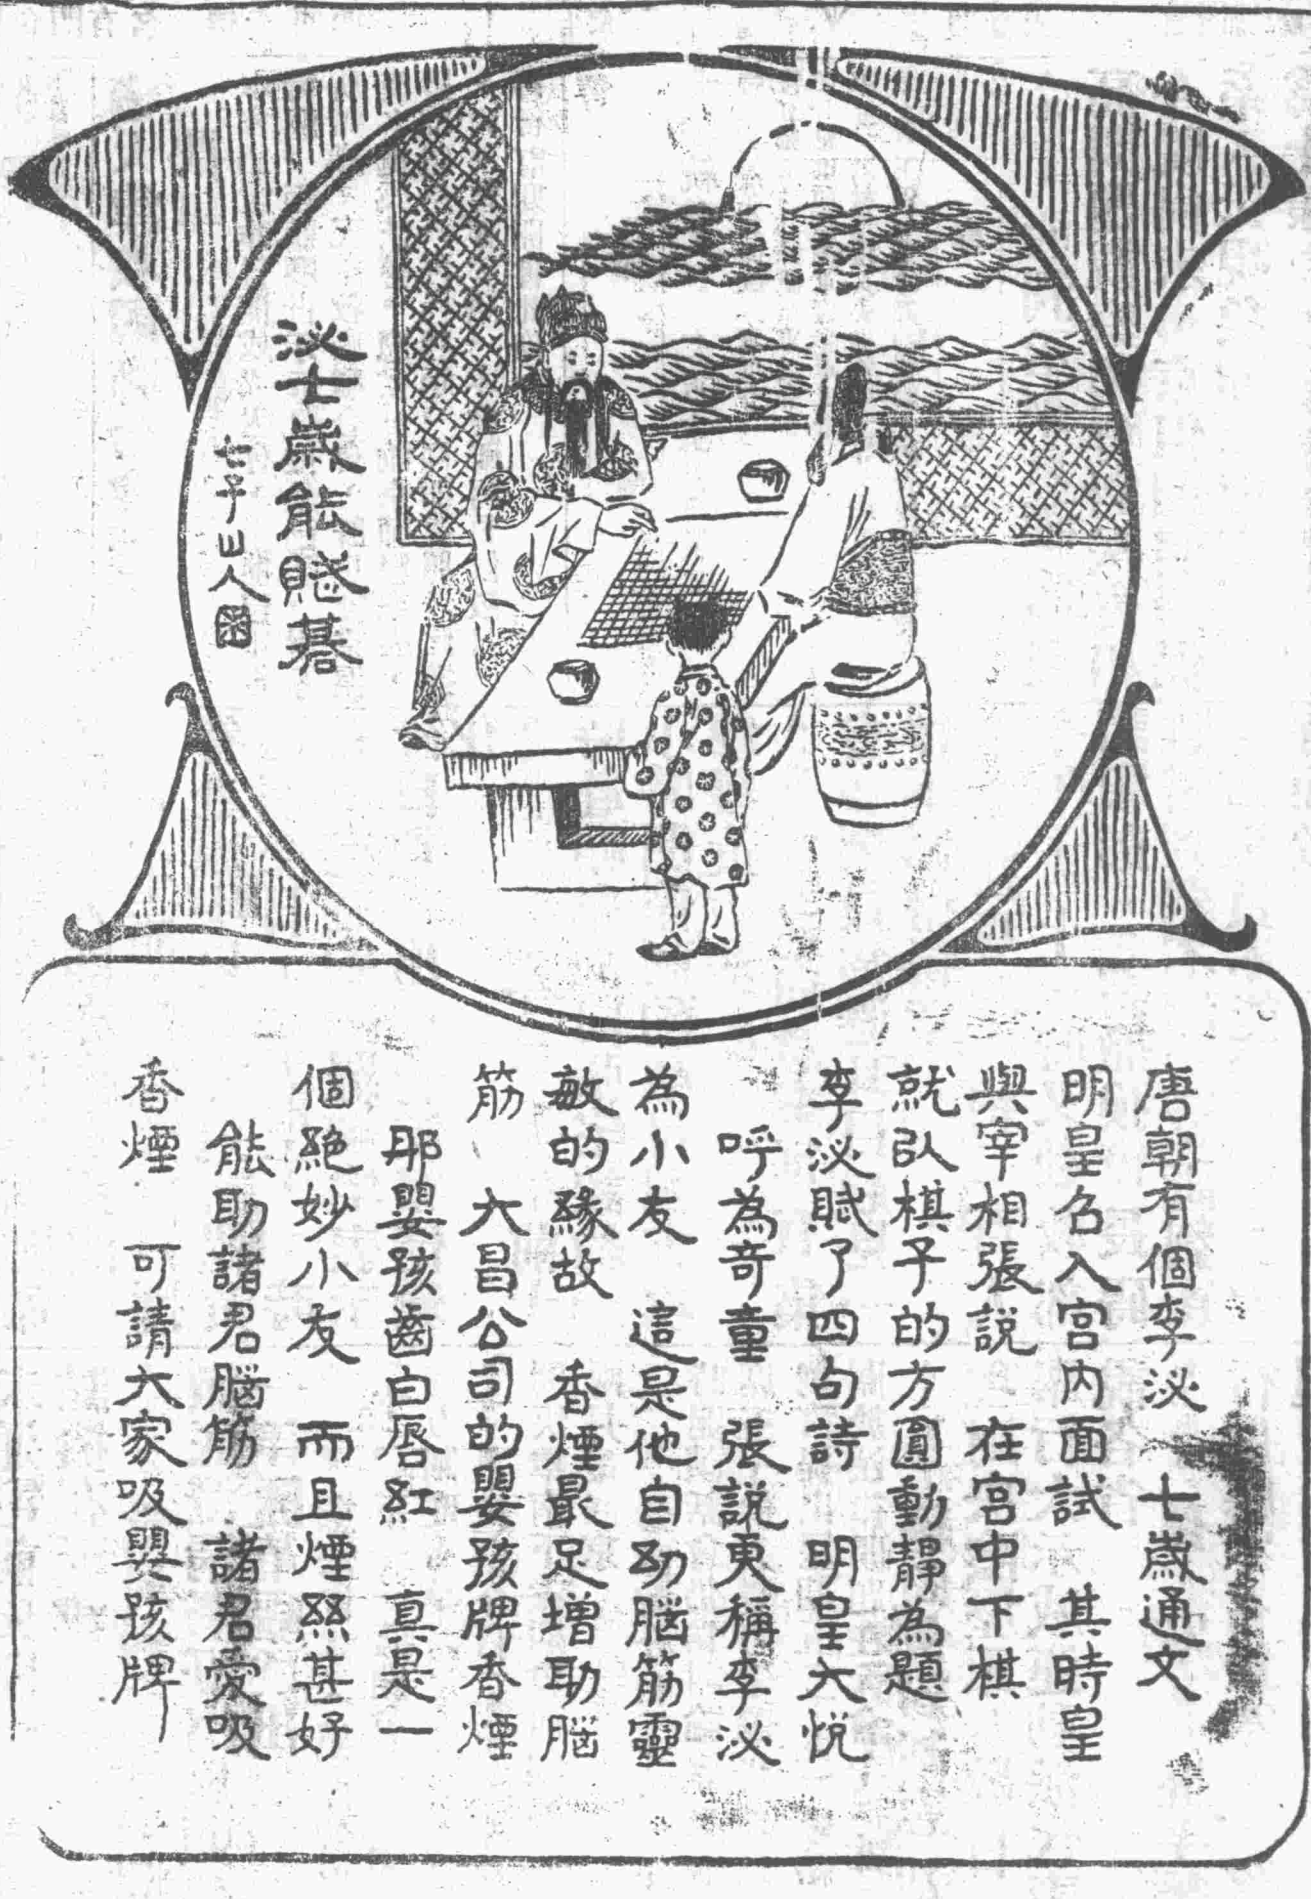 泌七歲能賦棊
唐朝有個李泌　七歲通文
明皇召入宮內面試　其時皇
與宰相張說　在宮中下棋
就以棋子的方圓動靜為題
李泌賦了四句詩　明皇大悅
呼為奇童　張說更稱李泌
為小友　這是他自幼腦筋靈
敏的緣故　香煙最足增助腦
筋　大昌公司的嬰孩牌香煙
那嬰孩齒白唇紅　真是一
個絕妙小友　而且煙絲甚好
能助諸君腦筋　諸君愛吸
香煙　可請大家吸嬰孩牌